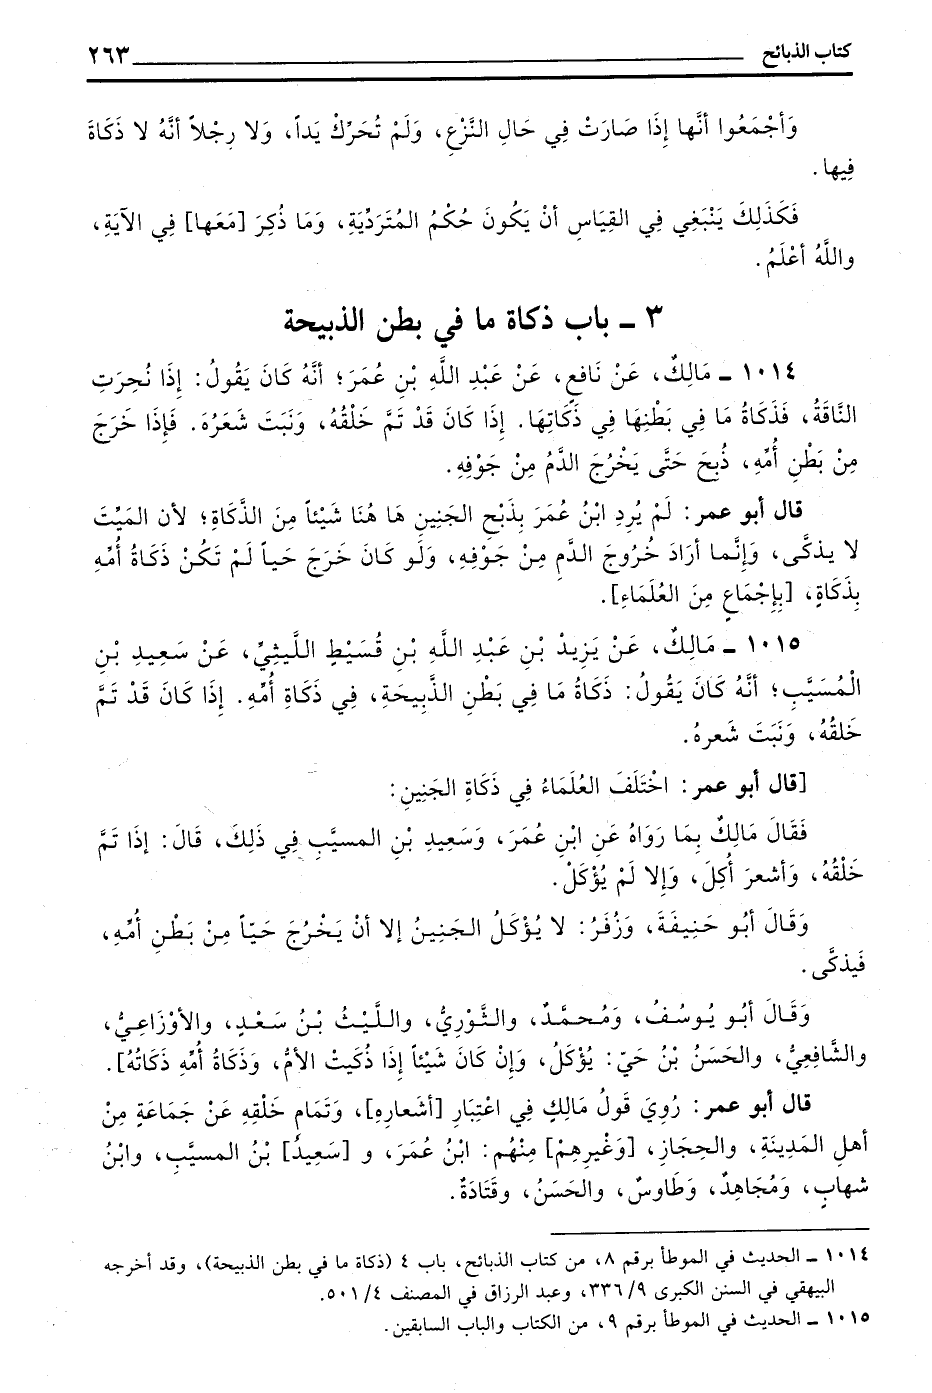 كتاب الذبائح ٢٦٣
وَأجْمَعُوا أنَّها إذَا صَارَتْ فِي حَالِ النَّزْعِ، وَلَمْ تُحَرِّكْ يَداً، وَلا رِجْلاً أنَّهُ لا ذَكَاةَ
فِيها.
فَكَذَلِكَ يَنْبَغِي فِي القِيَاسِ أنْ يَكُونَ حُكْمُ المُتَرَدِّيَةِ، وَمَا ذُكِرَ [مَعَها] فِي الآيَةِ،
واللَّهُ أعْلَمُ.
٣ ـ باب ذكاة ما في بطن الذبيحة
١٠١٤ ـ مَالِكٌ، عَنْ نَافِعٍ، عَنْ عَبْدِ اللَّهِ بْنِ عُمَرَ؛ أنَّهُ كَانَ يَقُولُ: إذَا نُحِرَتِ
النَّاقَةُ، فَذَكَاةُ مَا فِي بَطْنِهَا فِي ذَكَاتِهَا. إذَا كَانَ قَدْ تَمَّ خَلْقُهُ، وَنَبَتَ شَعَرُهَ. فَإذَا خَرَجَ
مِنْ بَطْنِ أُمِّهِ، ذُبِحَ حَتَّى يَخْرُجَ الدَّمُ مِنْ جَوْفِهِ.
قال أبو عمر: لَمْ يُرِدِ ابْنُ عُمَرَ بِذَبْحِ الجَنِينِ هَا هُنَا شَيْئاً مِنَ الذَّكَاةِ؛ لأن المَيْتَ
لا يذكَّى، وَإنَّما أرَادَ خُرُوجَ الدَّمِ مِنْ جَوْفِهِ، وَلَو كَانَ خَرَجَ حَياً لَمْ تَكُنْ ذَكَاةُ أُمِّهِ
بِذَكَاةٍ، [بِإجْمَاعٍ مِنَ العُلَمَاءِ].
١٠١٥ ـ مَالِكٌ، عَنْ يَزِيدْ بْنِ عَبْدِ اللَّهِ بْنِ قُسَيْطٍ اللَّيثِيِّ، عَنْ سَعِيدِ بْنِ
الْمُسَيَّبِ؛ أنَّهُ كَانَ يَقُولُ: ذَكَاةُ مَا فِي بَطْنِ الذَّبِيحَةِ، فِي ذَكَاةِ أُمِّهِ. إذَا كَانَ قَدْ تَمَّ
خَلقُهُ، وَنَبَتَ شَعرهُ.
[قال أبو عمر: اخْتَلَفَ العُلَمَاءُ فِي ذَكَاةِ الجَنِينِ:
فَقَالَ مَالِكٌ بِمَا رَوَاهُ عَنِ ابْنِ عُمَرَ، وَسَعِيدِ بْنِ المسيَّبِ فِي ذَلِكَ، قَالَ: إذَا تَمَّ
خَلْقُهُ، وَأشعرَ أُكِلَ، وَإلا لَمْ يُؤْكَلْ.
وَقَالَ أبُو حَنِيفَةَ، وَزُفَرُ: لا يُؤْكَلُ الجَنِينُ إلا أنْ يَخْرُجَ حَيّاً مِنْ بَطْنِ أُمِّهِ،
فَيذكَّى.
وَقَالَ أبُو يُوسُفُ، وَمُحمَّدٌ، والثَّوْرِيُّ، واللَّيْثُ بْنُ سَعْدٍ، والأوْزَاعِيُّ،
والشَّافِعِيُّ، والحَسَنُ بْنُ حَيّ: يُؤْكَلُ، وَإنْ كَانَ شَيْئاً إذَا ذُكيَتْ الأمُّ، وَذَكَاةُ أُمِّهِ ذَكَاتُهُ].
قال أبو عمر: رُوِيَ قَولُ مَالِكٍ فِي اعْتِبَارِ [أشعارِهِ]، وَتَمَامِ خَلْقِهِ عَنْ جَمَاعَةٍ مِنْ
أهلِ المَدِينَةِ، والحِجَازِ، [وَغَيرِهِمْ] مِنْهُم: ابْنُ عُمَرَ، و [سَعِيدُ] بْنُ المسيَّبِ، وابْنُ
شهابٍ، وَمُجَاهِدٌ، وَطَاوسٌ، والحَسَنُ، وقَتَادَةُ.
١٠١٤ ـ الحديث في الموطأ برقم ٨، من كتاب الذبائح، باب ٤ (ذكاة ما في بطن الذبيحة)، وقد أخرجه
البيهقي في السنن الكبرى ٣٣٦/٩، وعبد الرزاق في المصنف ٥٠١/٤.
١٠١٥ ـ الحديث في الموطأ برقم ٩، من الكتاب والباب السابقين.